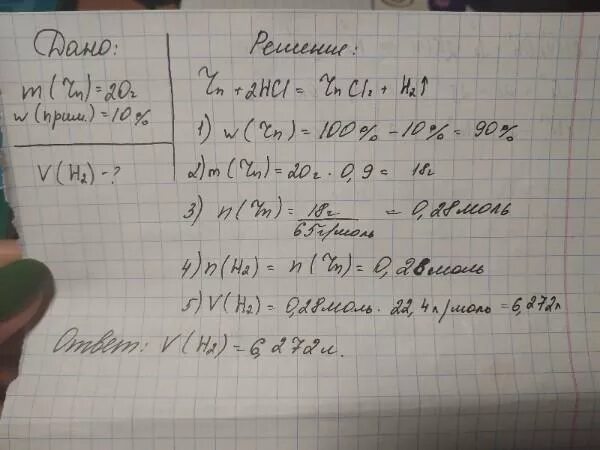 Дано:
m(Zn)=20г
w(прим.)=10%
V(H₂)-?
Решение:
Zn+2HCl=ZnCl₂+H₂↑
1) w(Zn)=100%-10%=90%
2) m(Zn)=20г·0,9=18г
3) n(Zn)=18г/65г/моль=0,28моль
4) n(H₂)=n(Zn)=0,28моль
5) V(H₂)=0,28моль·22,4л/моль=6,272л
Ответ: V(H₂)=6,272л.